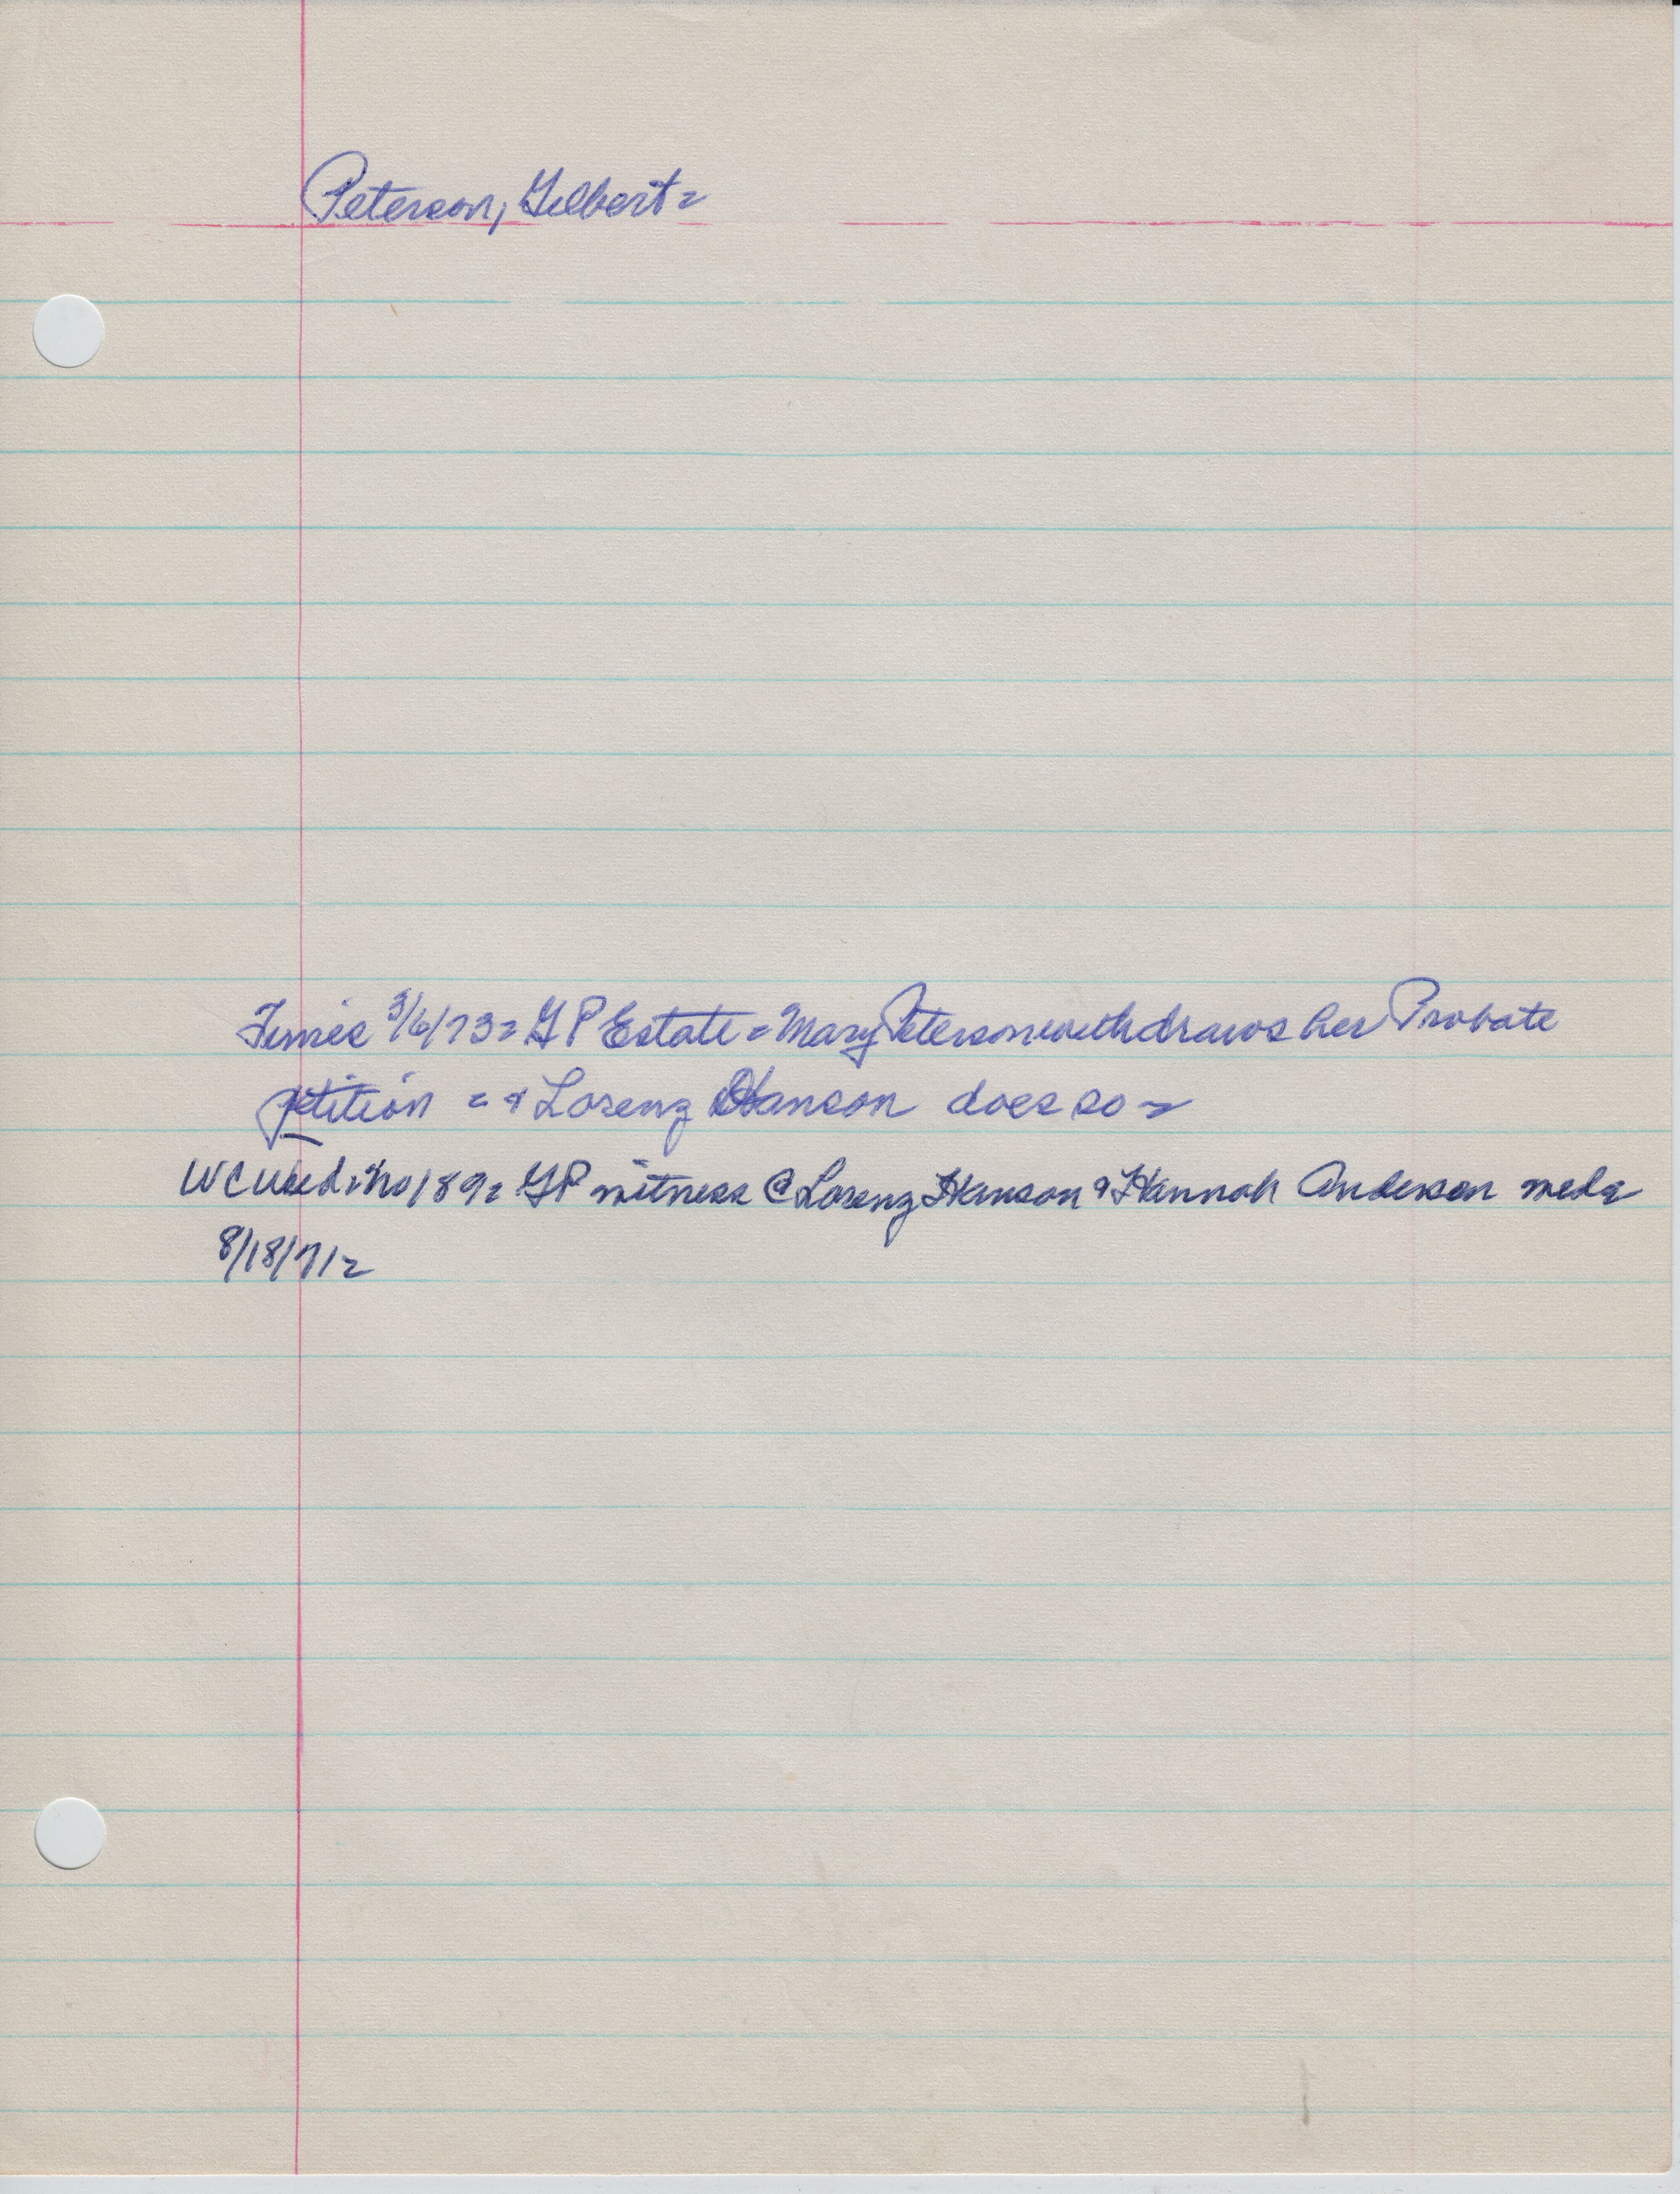 Peterson, Gilbert =
Times 3/6/73 = GP Estate = Mary Peterson withdraws her Probate
petition = & Lorenz Hanson does so =
WC 189 = GP witness @ Lorenz Hanson & Hannah Anderson weds
8/18/71 =